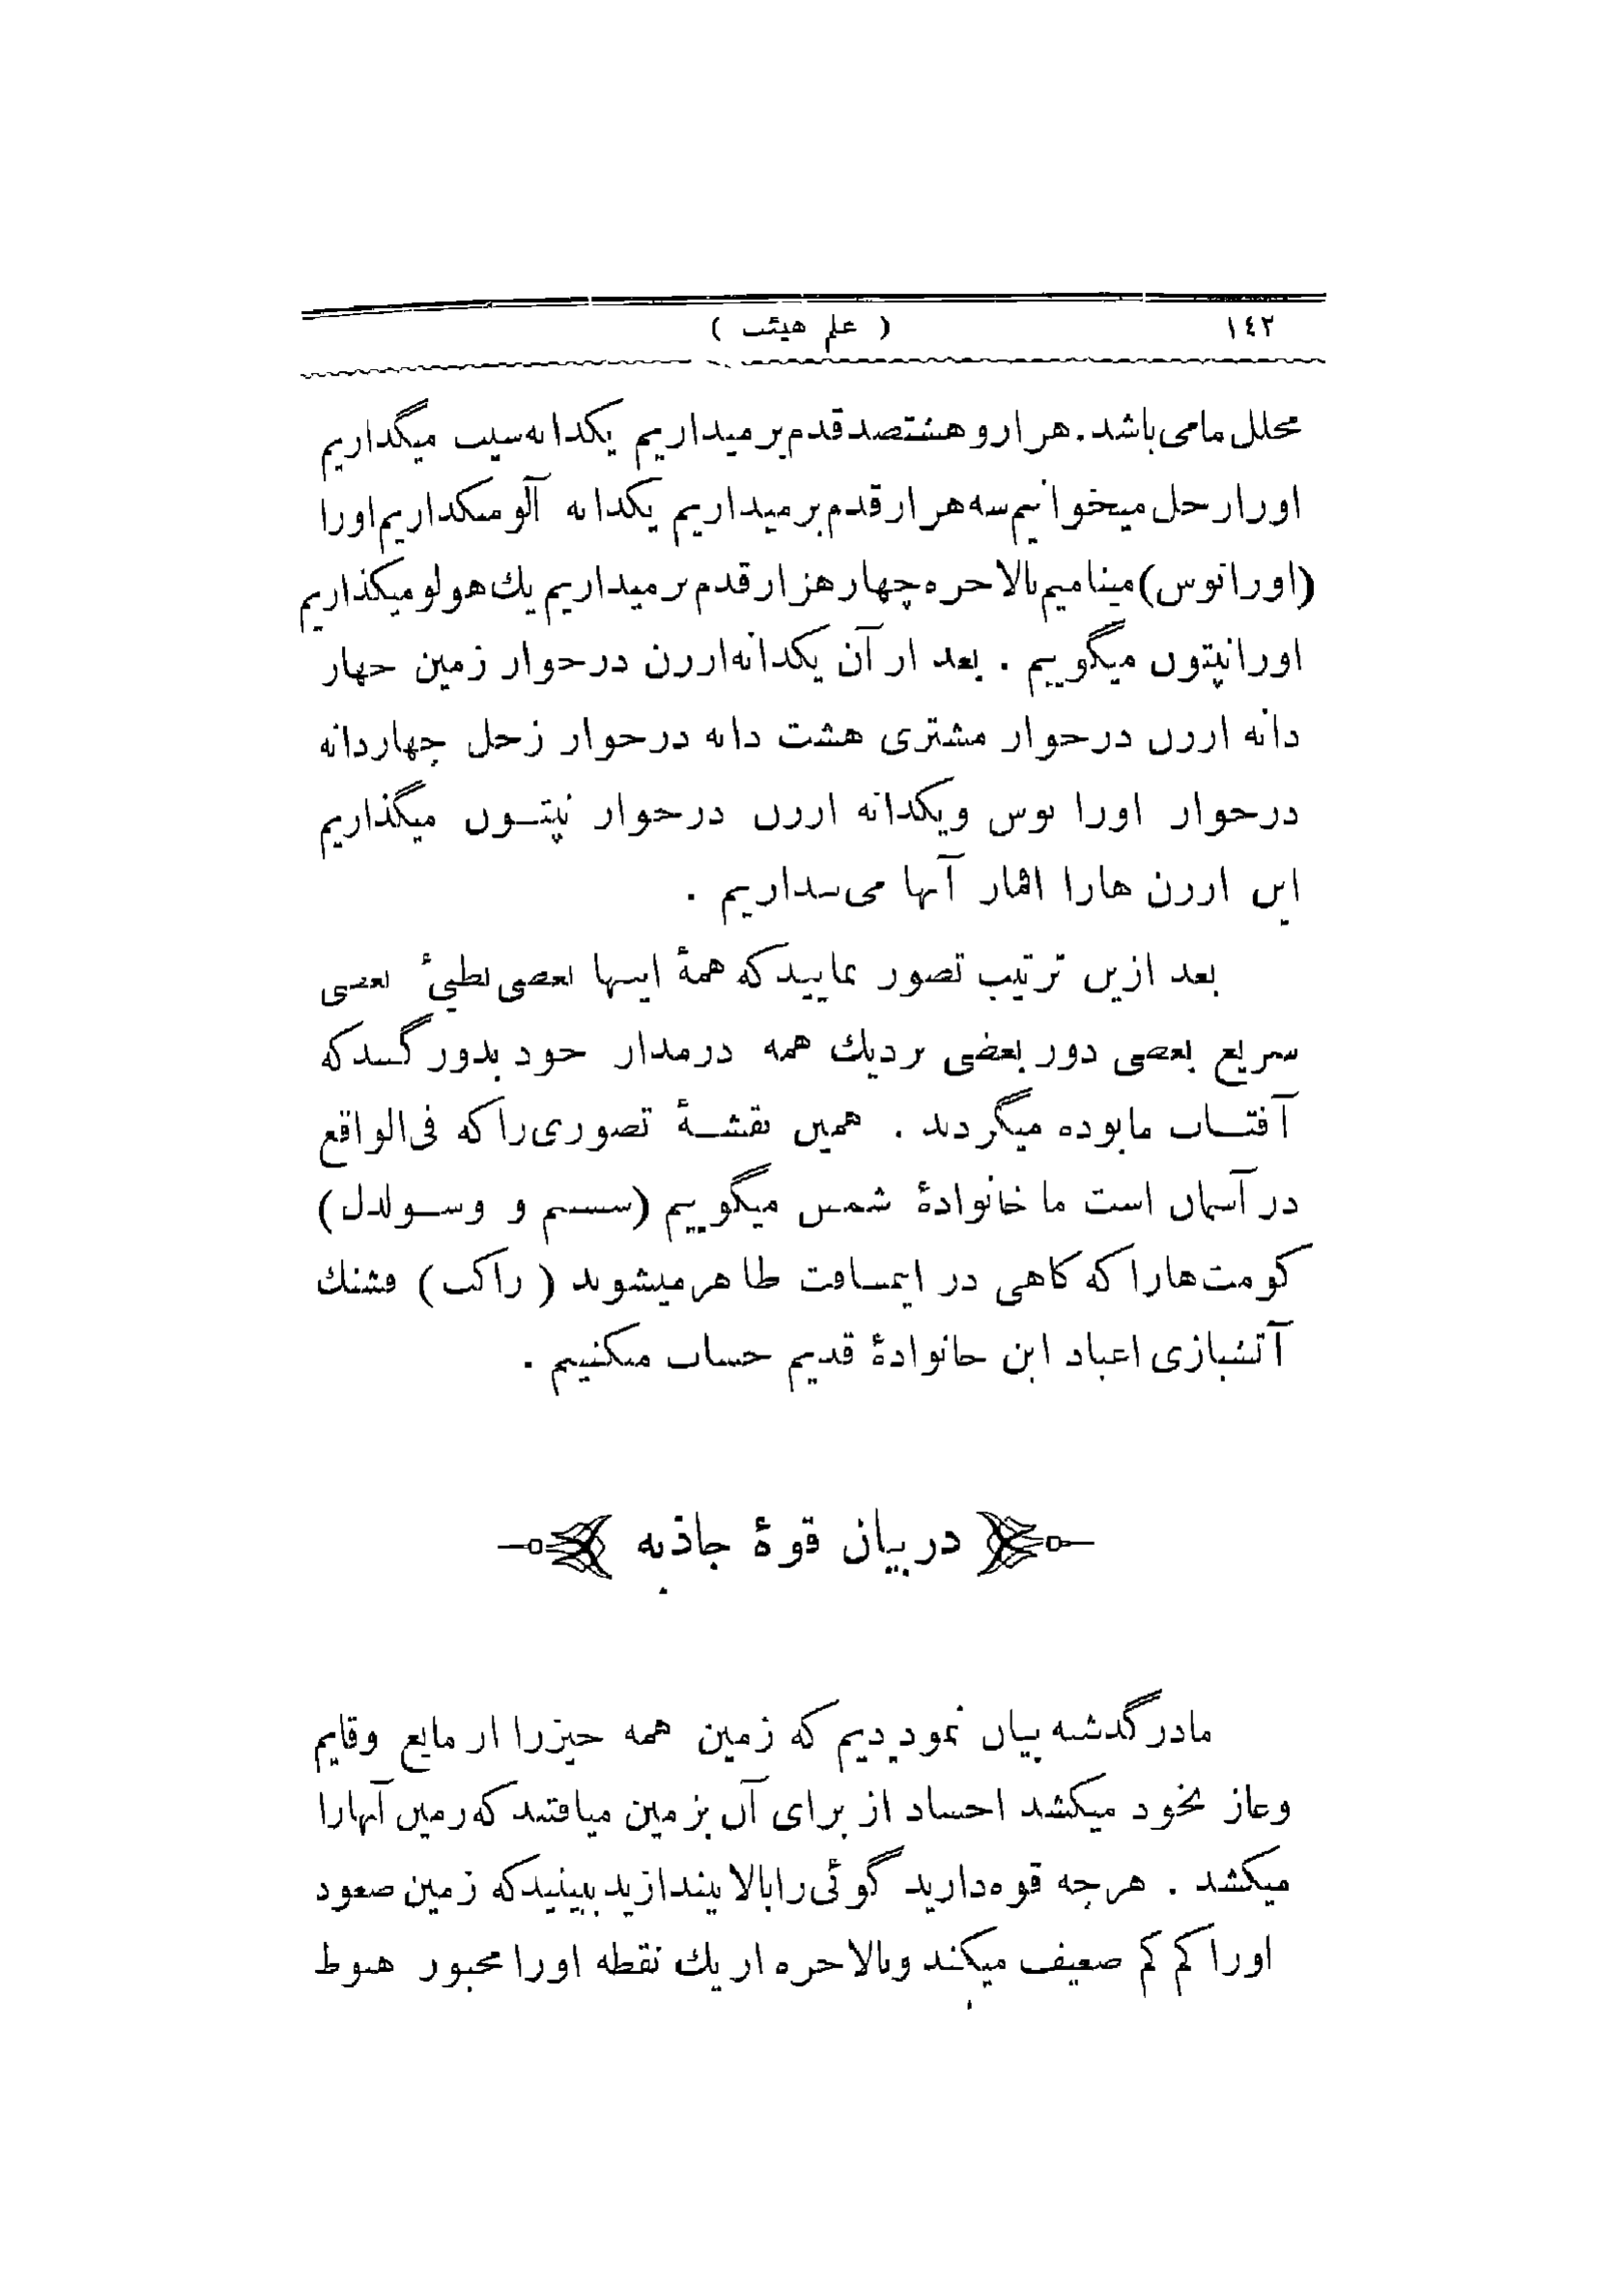 ١٤٢ ( علم هیئت )
محلل مامی باشد. هزار و هشتصد قدم برمیداریم یکدانه سیب میگذاریم
اورا زحل میخوانیم سه هزار قدم برمیداریم یکدانه آلو میگذاریم اورا
(اورانوس) مینامیم بالاخره چهار هزار قدم برمیداریم یك هولو میگذاریم
اورا نپتون میگوییم . بعد از آن یکدانه ارزن درجوار زمین چهار
دانه ارزن درجوار مشتری هشت دانه درجوار زحل چهاردانه
درجوار اورا نوس ویکدانه ارزن درجوار نپتـون میگذاریم
این ارزن هارا اقمار آنها می‌پنداریم .
بعد ازین ترتیب تصور نمایید که همهٔ اینها بعضی بطیءٔ بعضی
سریع بعضی دور بعضی نزدیك همه درمدار خود بدور گنبدکه
آفتـاب مابوده میگردند . همین نقشـهٔ تصوری راکه فی‌الواقع
در آسمان است ما خانوادهٔ شمس میگوییم (سیستم و وسـولدل)
کومت‌هارا که کاهی در اینمسافت ظاهرمیشوند ( راکب ) فشنك
آتشبازی اعیاد این خانوادهٔ قدیم حساب میکنیم .
در بیان قوهٔ جاذبه
مادر گذشته بیان نمودیم که زمین همه چیزرا از مایع وقایم
وغاز بخود میکشد اجساد از برای آن بزمین میافتند که زمین آنهارا
میکشد . هرچه قوه دارید گوئی را بالا بیندازید ببینید که زمین صعود
اورا کم کم ضعیف میکند وبالاخره از یك نقطه اورا مجبور هبوط